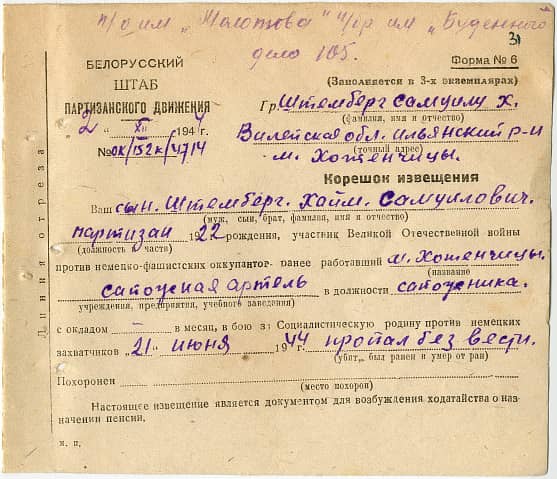 п/о им „Молотова" п/р им „Буденного"
дело 105.
31
БЕЛОРУССКИЙ
ШТАБ
ПАРТИЗАНСКОГО ДВИЖЕНИЯ
2 " XI " 1944 г.
№ОК/152к/4714
Форма № 6
(Заполняется в 3-х экземплярах)
Гр. Штемберг Самуилу Х.
(фамилия, имя и отчество)
Вилейская обл. Ильянский р-н
(точный адрес)
м. Хотенчицы.
Корешок извещения
Ваш сын. Штемберг. Хайм. Самуилович.
(муж, сын, брат, фамилия, имя и отчество)
партизан 1922 рождения, участник Великой Отечественной войны
(должность и часть)
против немецко-фашистских оккупантов ранее работавший м. Хотенчицы.
(название
сапожная артель в должности сапожника.
учреждения, предприятия, учебного заведения)
с окладом — в месяц, в бою за Социалистическую родину против немецких
захватчиков „21" июня 1944 пропал без вести.
(убит, был ранен и умер от ран)
Похоронен
(место похорон)
Настоящее извещение является документом для возбуждения ходатайства о наз-
начении пенсии.
м. п.
Линия отреза